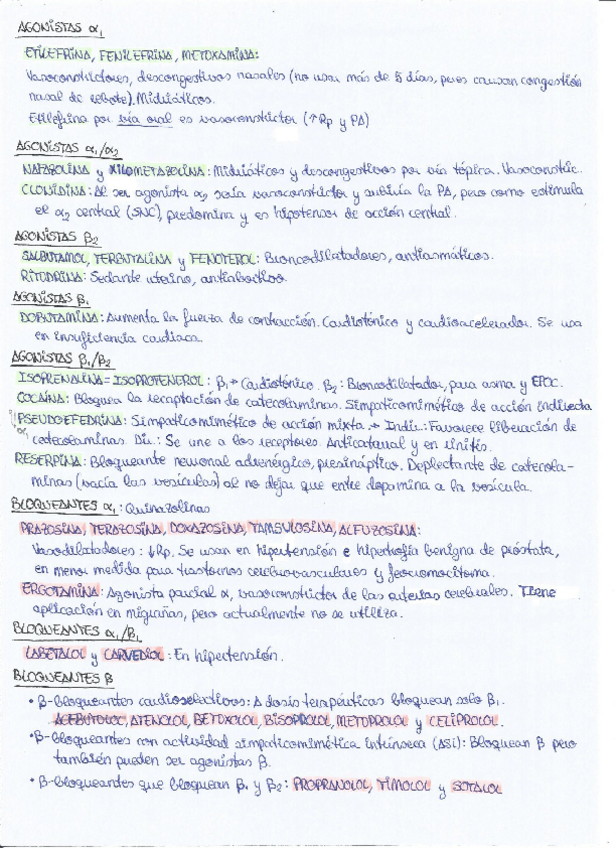 AGONISTAS α₁
ETILEFRINA, FENILEFRINA, METOXAMINA:
Vasoconstrictores, descongestivos nasales (no usar más de 5 días, pues causan congestión
nasal de rebote). Midriáticos.
Etilefrina por vía oral es vasoconstrictor (↑Rp y PA)
AGONISTAS α₁/α₂
NAFAZOLINA y XILOMETAZOLINA: Midriáticos y descongestivos por vía tópica. Vasoconstric.
CLONIDINA: Al ser agonista α₂ sería vasoconstrictor y subiría la PA, pero como estimula
el α₂ central (SNC), predomina y es hipotensor de acción central.
AGONISTAS β2
SALBUTAMOL, TERBUTALINA y FENOTEROL: Broncodilatadores, antiasmáticos.
RITODRINA: Sedante uterino, antiabortivo.
AGONISTAS β₁
DOBUTAMINA: Aumenta la fuerza de contracción. Cardiotónico y cardioacelerador. Se usa
en insuficiencia cardiaca.
AGONISTAS β₁/β₂
ISOPRENALINA = ISOPROTENEROL: β₁→ Cardiotónico. β₂: Broncodilatador, para asma y EPOC.
COCAÍNA: Bloquea la recaptación de catecolaminas. Simpaticomimético de acción indirecta
PSEUDOEFEDRINA: Simpaticomimético de acción mixta → Indir.: Favorece liberación de
α₁ catecolaminas. Dir.: Se une a los receptores. Anticatarral y en rinitis.
RESERPINA: Bloqueante neuronal adrenérgico, presináptico. Deplectante de catecola-
minas (vacía las vesículas) al no dejar que entre dopamina a la vesícula.
BLOQUEANTES α₁: Quinazolinas
PRAZOSINA, TERAZOSINA, DOXAZOSINA, TAMSULOSINA, ALFUZOSINA:
Vasodilatadores: ↓Rp. Se usan en hipertensión e hipertrofia benigna de próstata,
en menor medida para trastornos cerebrovasculares y feocromocitoma.
ERGOTAMINA: Agonista parcial α, vasoconstrictor de las arterias cerebrales. Tiene
aplicación en migrañas, pero actualmente no se utiliza.
BLOQUEANTES α₁/β₁
LABETALOL y CARVEDIOL: En hipertensión.
BLOQUEANTES β
• β-bloqueantes cardioselectivos: A dosis terapéuticas bloquean solo β₁.
ACEBUTOLOL, ATENOLOL, BETOXOLOL, BISOPROLOL, METOPROLOL y CELIPROLOL.
• β-bloqueantes con actividad simpaticomimética intrínseca (ASI): Bloquean β pero
también pueden ser agonistas β.
• β-bloqueantes que bloquean β₁ y β₂: PROPRANOLOL, TIMOLOL y SOTALOL